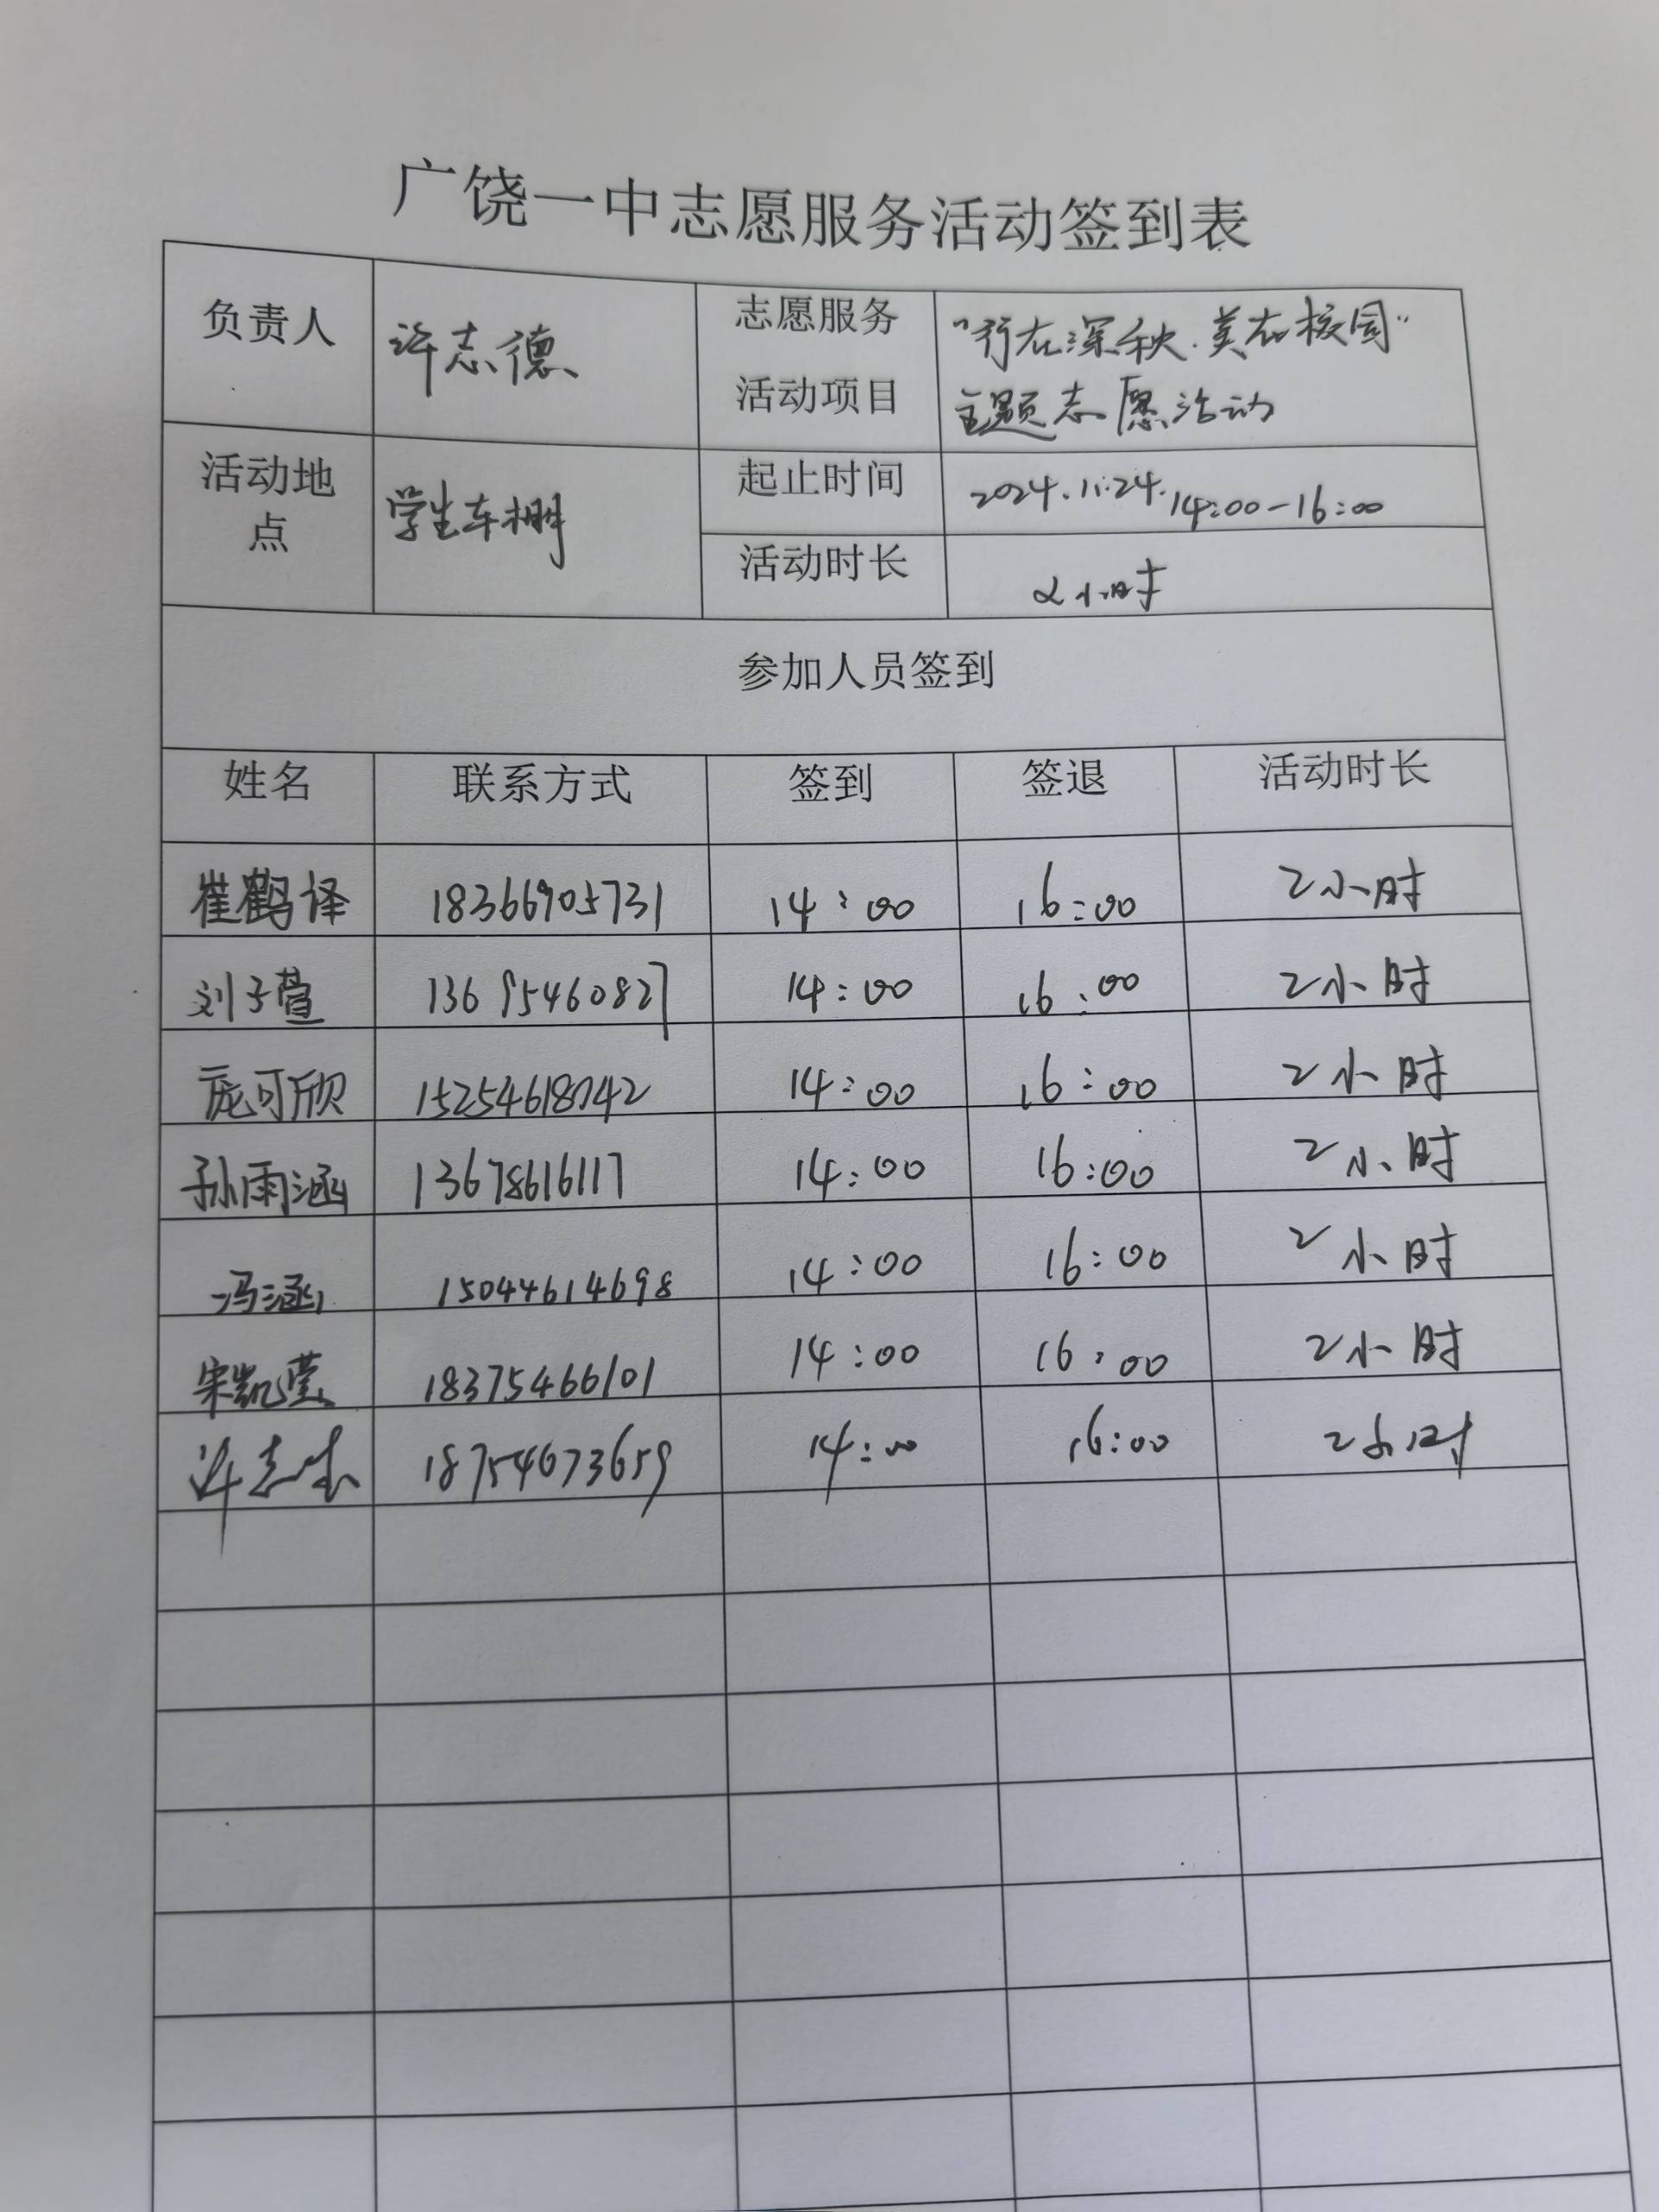 广饶一中志愿服务活动签到表
负责人 许志德 志愿服务活动项目 "行在深秋·美在校园"
主题志愿活动
活动地点 学生车棚 起止时间 2024.11.24. 14:00-16:00
活动时长 2小时
参加人员签到
姓名 联系方式 签到 签退 活动时长
崔鹤译 18366905731 14:00 16:00 2小时
刘子萱 13695460827 14:00 16:00 2小时
庞可欣 15254618042 14:00 16:00 2小时
孙雨涵 13678616117 14:00 16:00 2小时
冯涵 15044614698 14:00 16:00 2小时
宋凯莹 18375466101 14:00 16:00 2小时
许志 18754673659 14:00 16:00 2小时